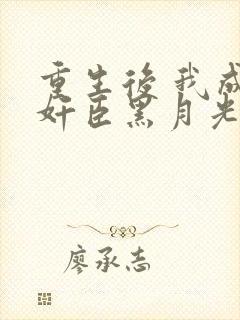 重生後我成
奸臣黑月光
廖承志